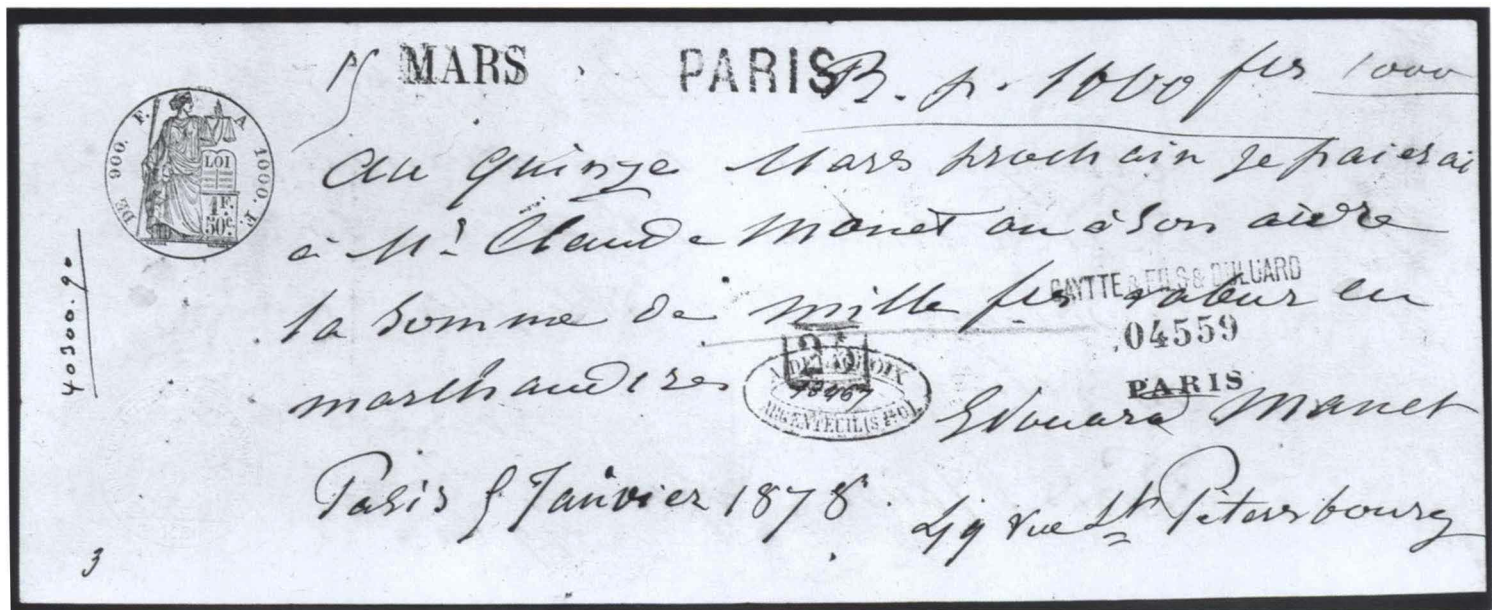 15 MARS PARIS B. p. 1000 frs 1000
DE 900. F. A 1000. F.
LOI
1F.
50c.
Au quinze Mars prochain je paierai
à Mr Claude Monet ou à son ordre
la somme de mille frs valeur en
GAYTTE & FILS & DULUARD
04559
PARIS
marchandises
25
A. DELACROIX
18467
ARGENTEUIL (S.&O.)
Edouard Manet
Paris 5 Janvier 1878
49 rue St Pétersbourg
40500.90
3